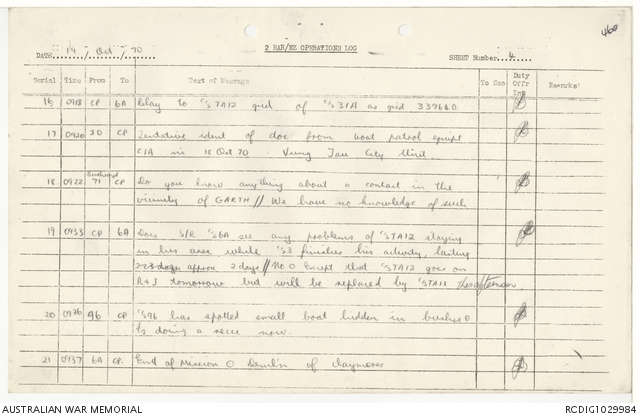 460
2 RAR/NZ OPERATIONS LOG
DATE 19 / Oct / 70 SHEET Number 4
Serial Time From To Text of Message To See Duty Offr Int Remarks
16 0918 CP 6A Relay to C/S TA12 grid of C/S 31A as grid 339660
17 0920 30 CP Tentative ident of doc from boat patrol equipt
C/A in 18 Oct 70 . Vung Tau City Unit
18 0922 71 CP Do you know anything about a contact in the
vicinity of GARTH // We have no knowledge of such
19 0933 CP 6A Does S/R C/S 6A see any problems of C/S TA12 staying
in his area while C/S 3 finishes his activity, lasting
approx 2 days // No O Except that C/S TA12 goes on
R & I tomorrow but will be replaced by C/S TA11 this afternoon
20 0936 96 CP C/S 96 has spotted small boat hidden in bushes O
Is doing a recce now.
21 0937 6A CP End of Mission O Demo'n of claymores
AUSTRALIAN WAR MEMORIAL RCDIG1029984